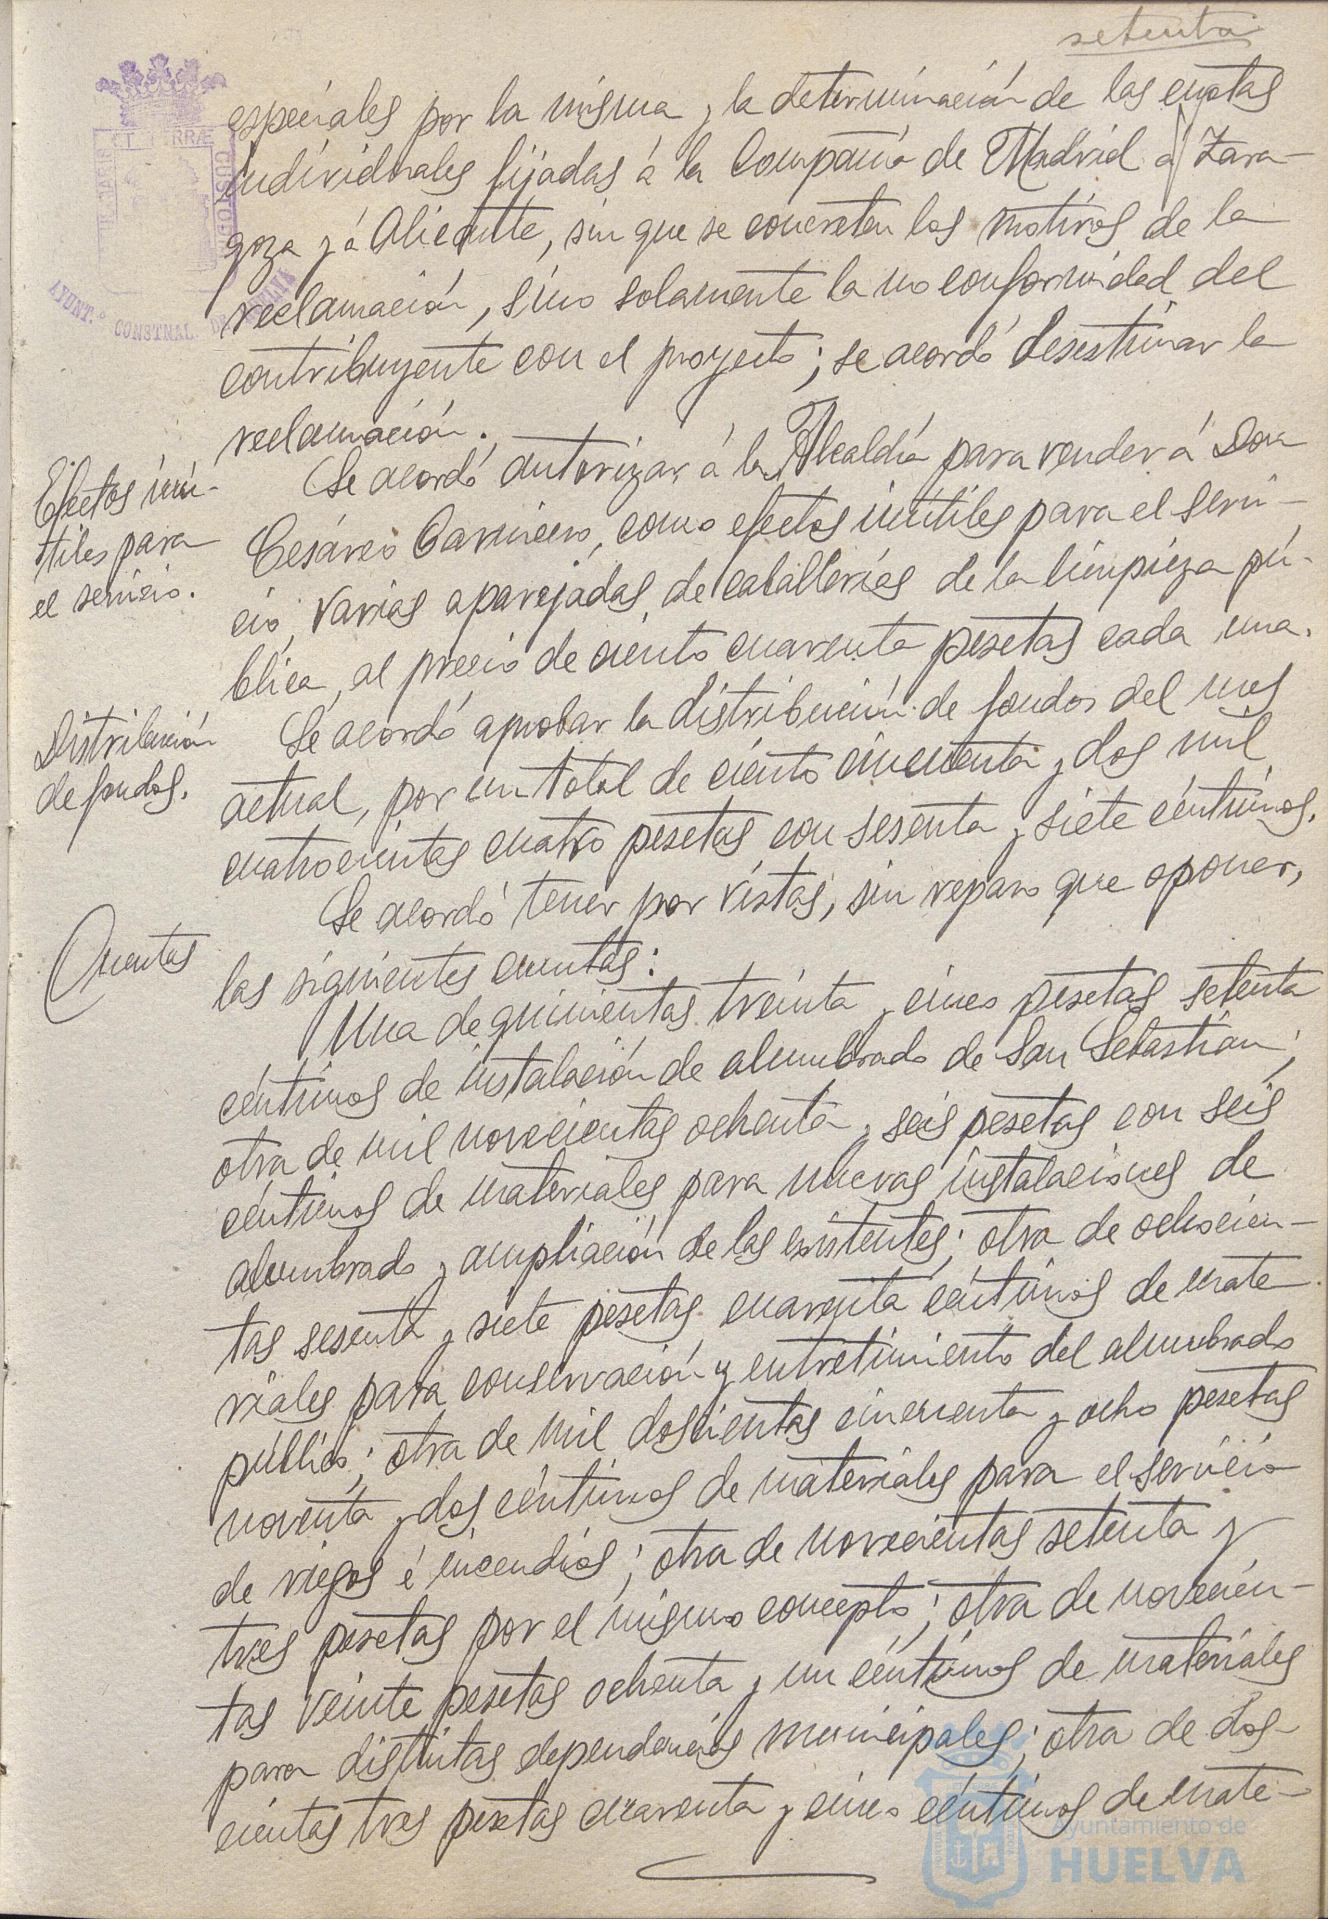 setenta
especiales por la misma y la determinación de las cuotas
individuales fijadas á la Compañia de Madrid á Zara-
goza y á Alicante, sin que se concreten los motivos de la
reclamación, sino solamente la no conformidad del
contribuyente con el proyecto; se acordó desestimar la
reclamación.
Efectos inú-
tiles para
el servicio.
Se acordó autorizar á la Alcaldía para vender á Don
Cesáreo Carnicero, como efectos inútiles para el servi-
cio, varias aparejadas de caballerías de la limpieza pú-
blica, al precio de ciento cuarenta pesetas cada una.
Distribución
de fondos.
Se acordó aprobar la distribución de fondos del mes
actual, por un total de ciento cincuenta y dos mil
cuatrocientas cuatro pesetas con sesenta y siete céntimos.
Cuentas
Se acordó tener por vistas, sin reparo que oponer,
las siguientes cuentas:
Una de quinientas treinta y cinco pesetas setenta
céntimos de instalación de alumbrado de San Sebastián;
otra de mil novecientas ochenta y seis pesetas con seis
céntimos de materiales para nuevas instalaciones de
alumbrado y ampliación de las existentes; otra de ochocien-
tas sesenta y siete pesetas cuarenta céntimos de mate-
riales para conservación y entretimiento del alumbrado
público; otra de mil doscientas cincuenta y ocho pesetas
noventa y dos céntimos de materiales para el servicio
de riegos é incendios; otra de novecientas setenta y
tres pesetas por el mismo concepto; otra de novecien-
tas veinte pesetas ochenta y un céntimos de materiales
para distintas dependencias municipales; otra de dos-
cientas tres pesetas cuarenta y cinco céntimos de mate-
AYUNT.º CONSTNAL. DE HUELVA
Ayuntamiento de
HUELVA